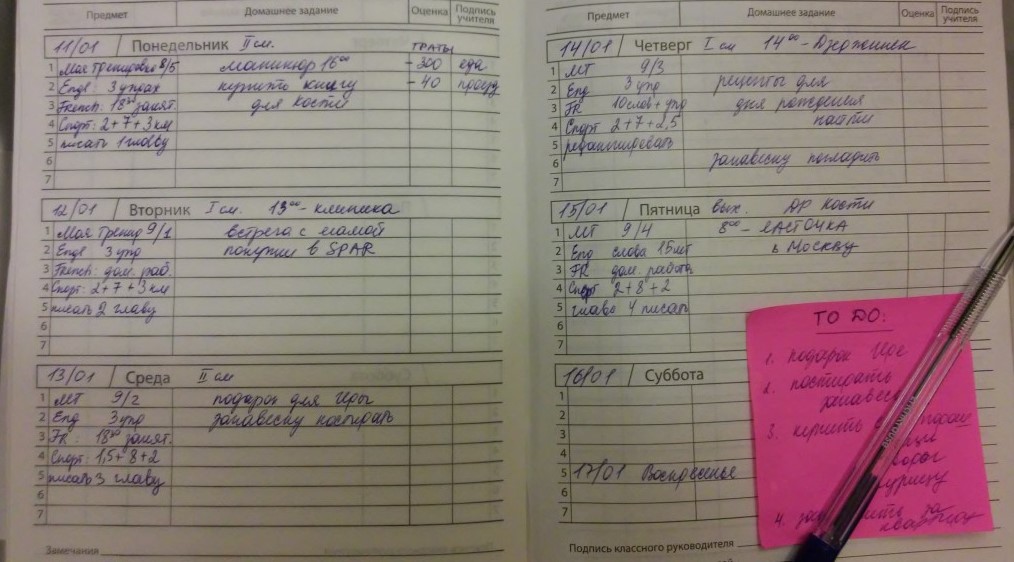 Предмет Домашнее задание Оценка Подпись учителя
11/01 Понедельник II см. ТРАТЫ
1 Моя тренировка 8/5 маникюр 16⁰⁰ - 300 еда
2 Engl 3 упрах купить книгу - 40 проезд
3 French: 18⁰⁰ занят. для Кости
4 Спорт: 2+7+3 км
5 писать 1 главу
6
7
12/01 Вторник I см. 13⁰⁰ - клиника
1 Моя тренир 9/1 встреча с мамой
2 Engl 3 упр покупки в SPAR
3 French: дом. раб.
4 Спорт: 2+7+3 км
5 писать 2 главу
6
7
13/01 Среда II см
1 МТ 9/2 подарок для Иры
2 Eng 3 упр занавеску постирать
3 FR: 18⁰⁰ занят.
4 Спорт: 1,5+8+2
5 писать 3 главу
6
7
Замечания
Предмет Домашнее задание Оценка Подпись учителя
14/01 Четверг I см 14⁰⁰ - Дзержинск
1 МТ 9/3
2 Eng 3 упр рецепты для
3 FR 10 слов + упр дня рождения
4 Спорт 2+7+2,5 найти
5 редактировать
6 занавеску погладить
7
15/01 Пятница вых. ДР Кости
1 МТ 9/4 8⁰⁰ - ЛАСТОЧКА
2 Eng слова 15 шт в Москву
3 FR дом. работа
4 Спорт 2+8+2
5 глава 4 писать
6
7
16/01 Суббота
1
2
3
4
5 17/01 Воскресенье
6
7
Подпись классного руководителя
TO DO:
1. подарок Ире
2. постирать
3. купить
курицу
4. за
квартиру